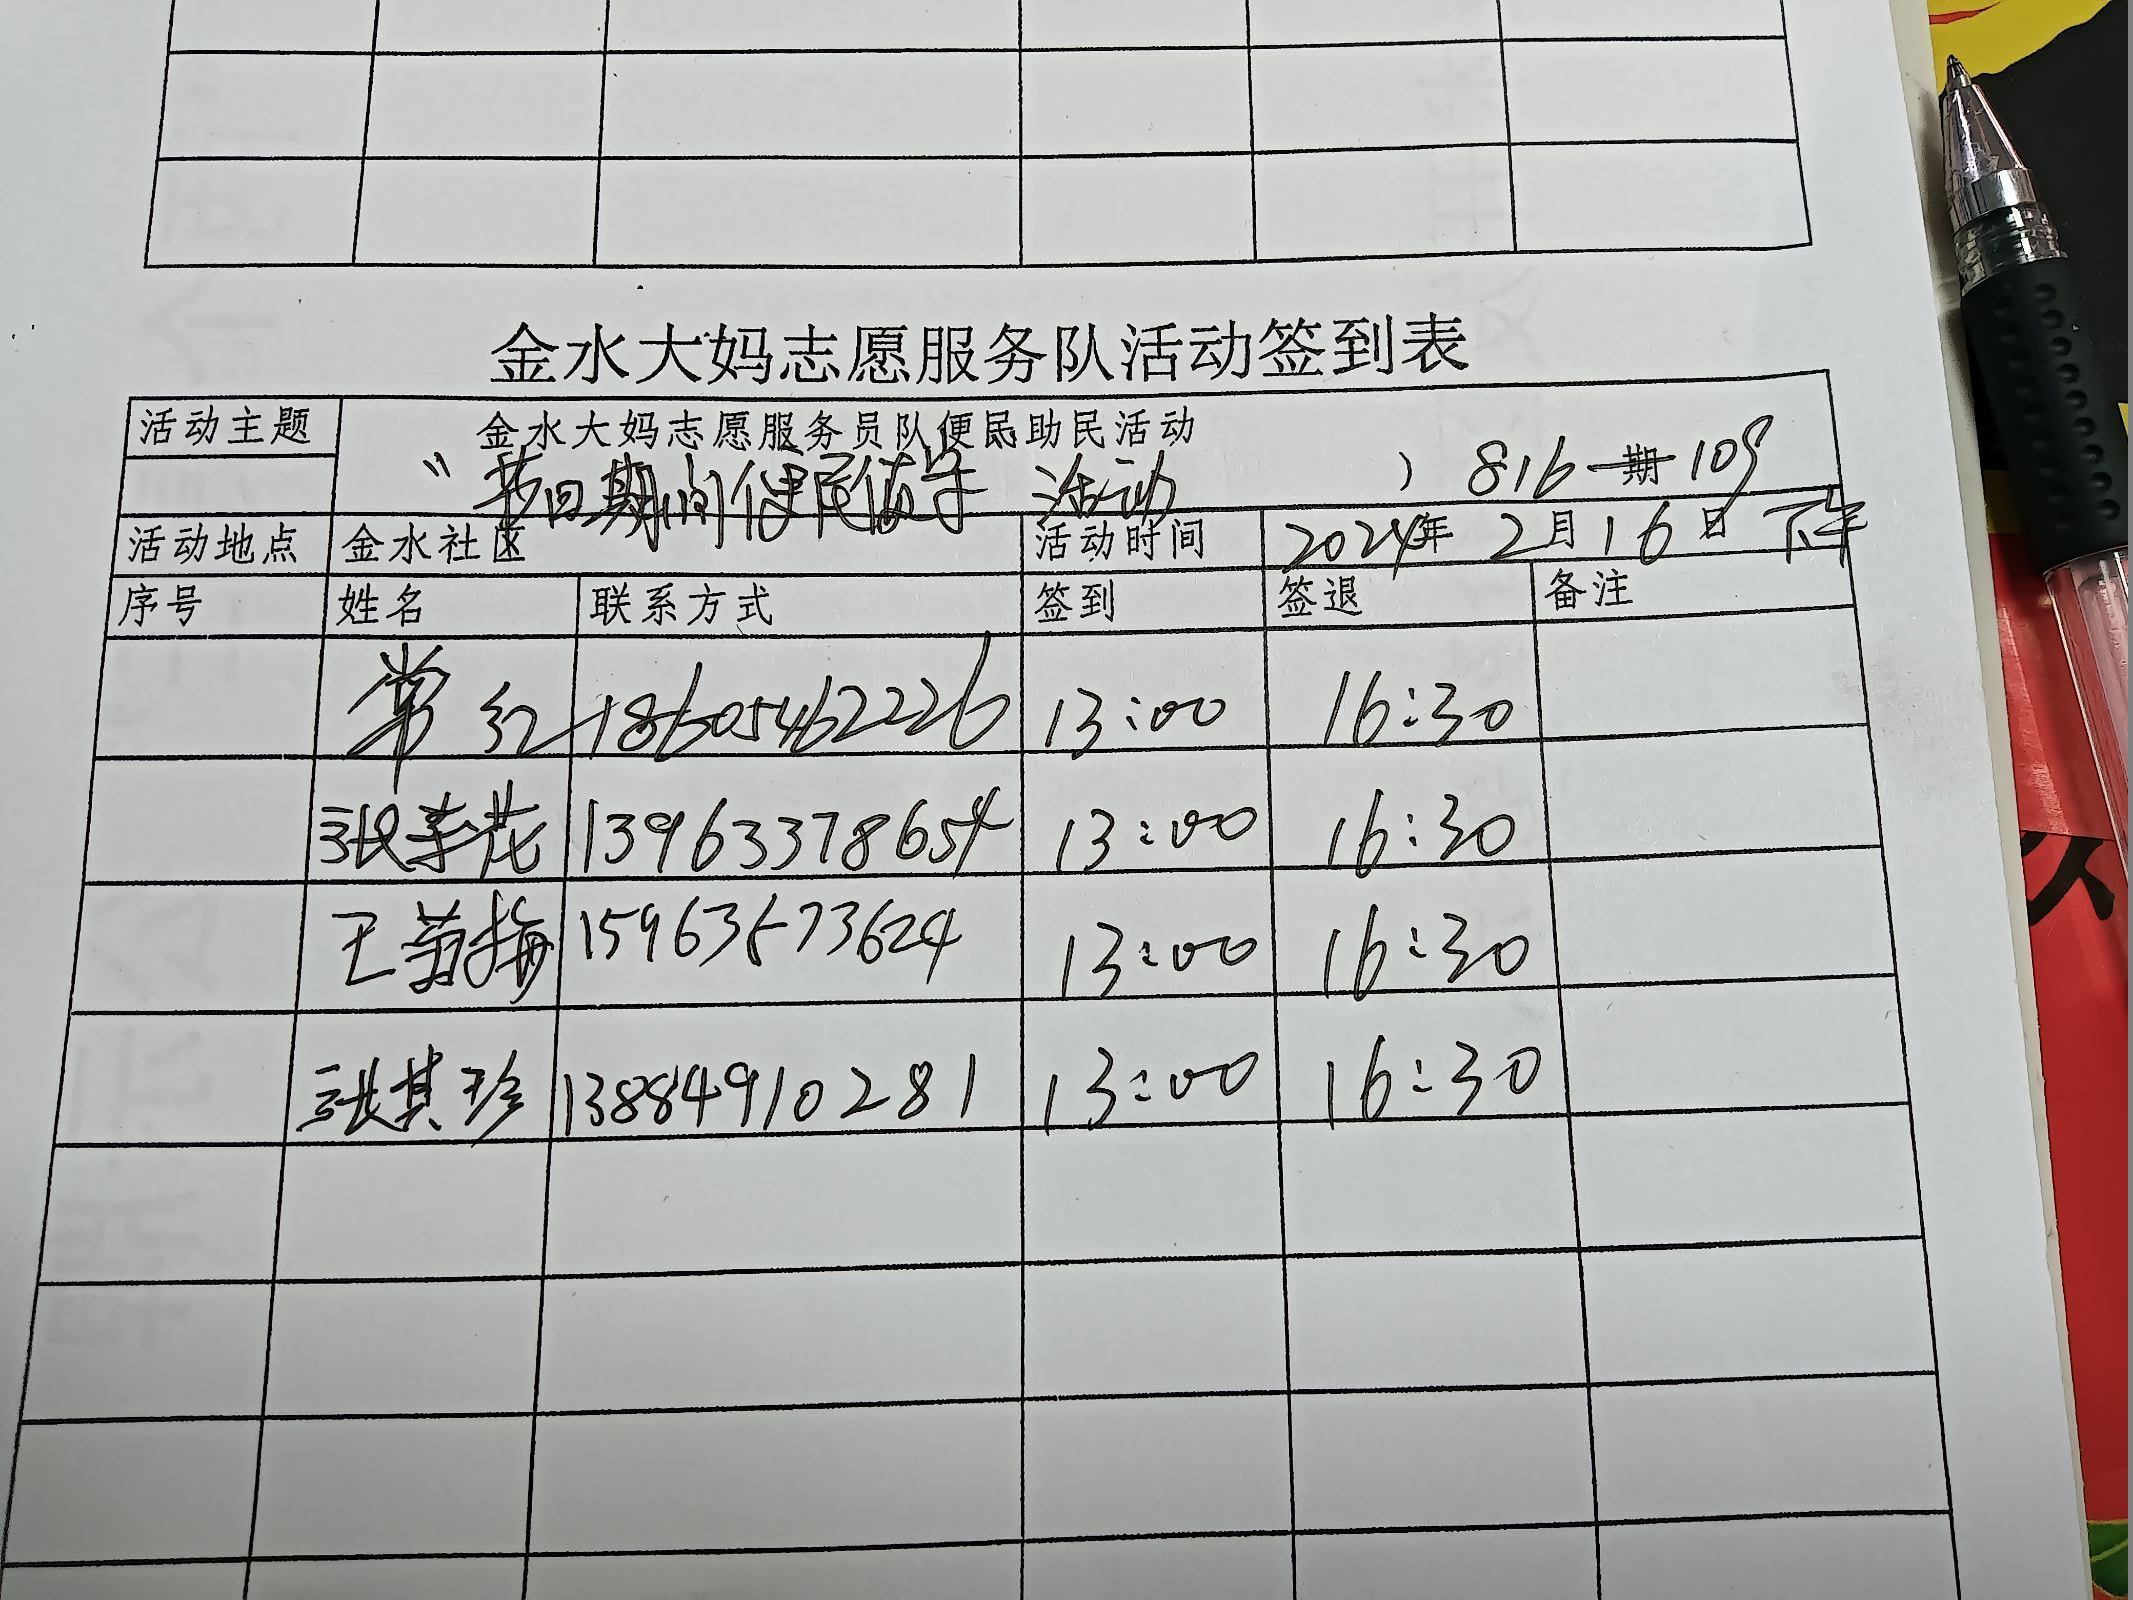 金水大妈志愿服务队活动签到表
活动主题 金水大妈志愿服务员队便民助民活动
"节日期间便民值守 活动 ) 816-期-109
活动地点 金水社区 活动时间 2024年 2月16日 下午
序号 姓名 联系方式 签到 签退 备注
常红 18605462226 13:00 16:30
张季花 13963378654 13:00 16:30
王菊梅 15963573624 13:00 16:30
张其珍 13884910281 13:00 16:30